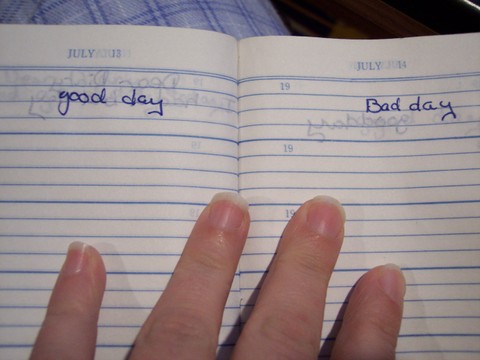 JULY 13
good day
JULY 14
19
Bad day
19
19